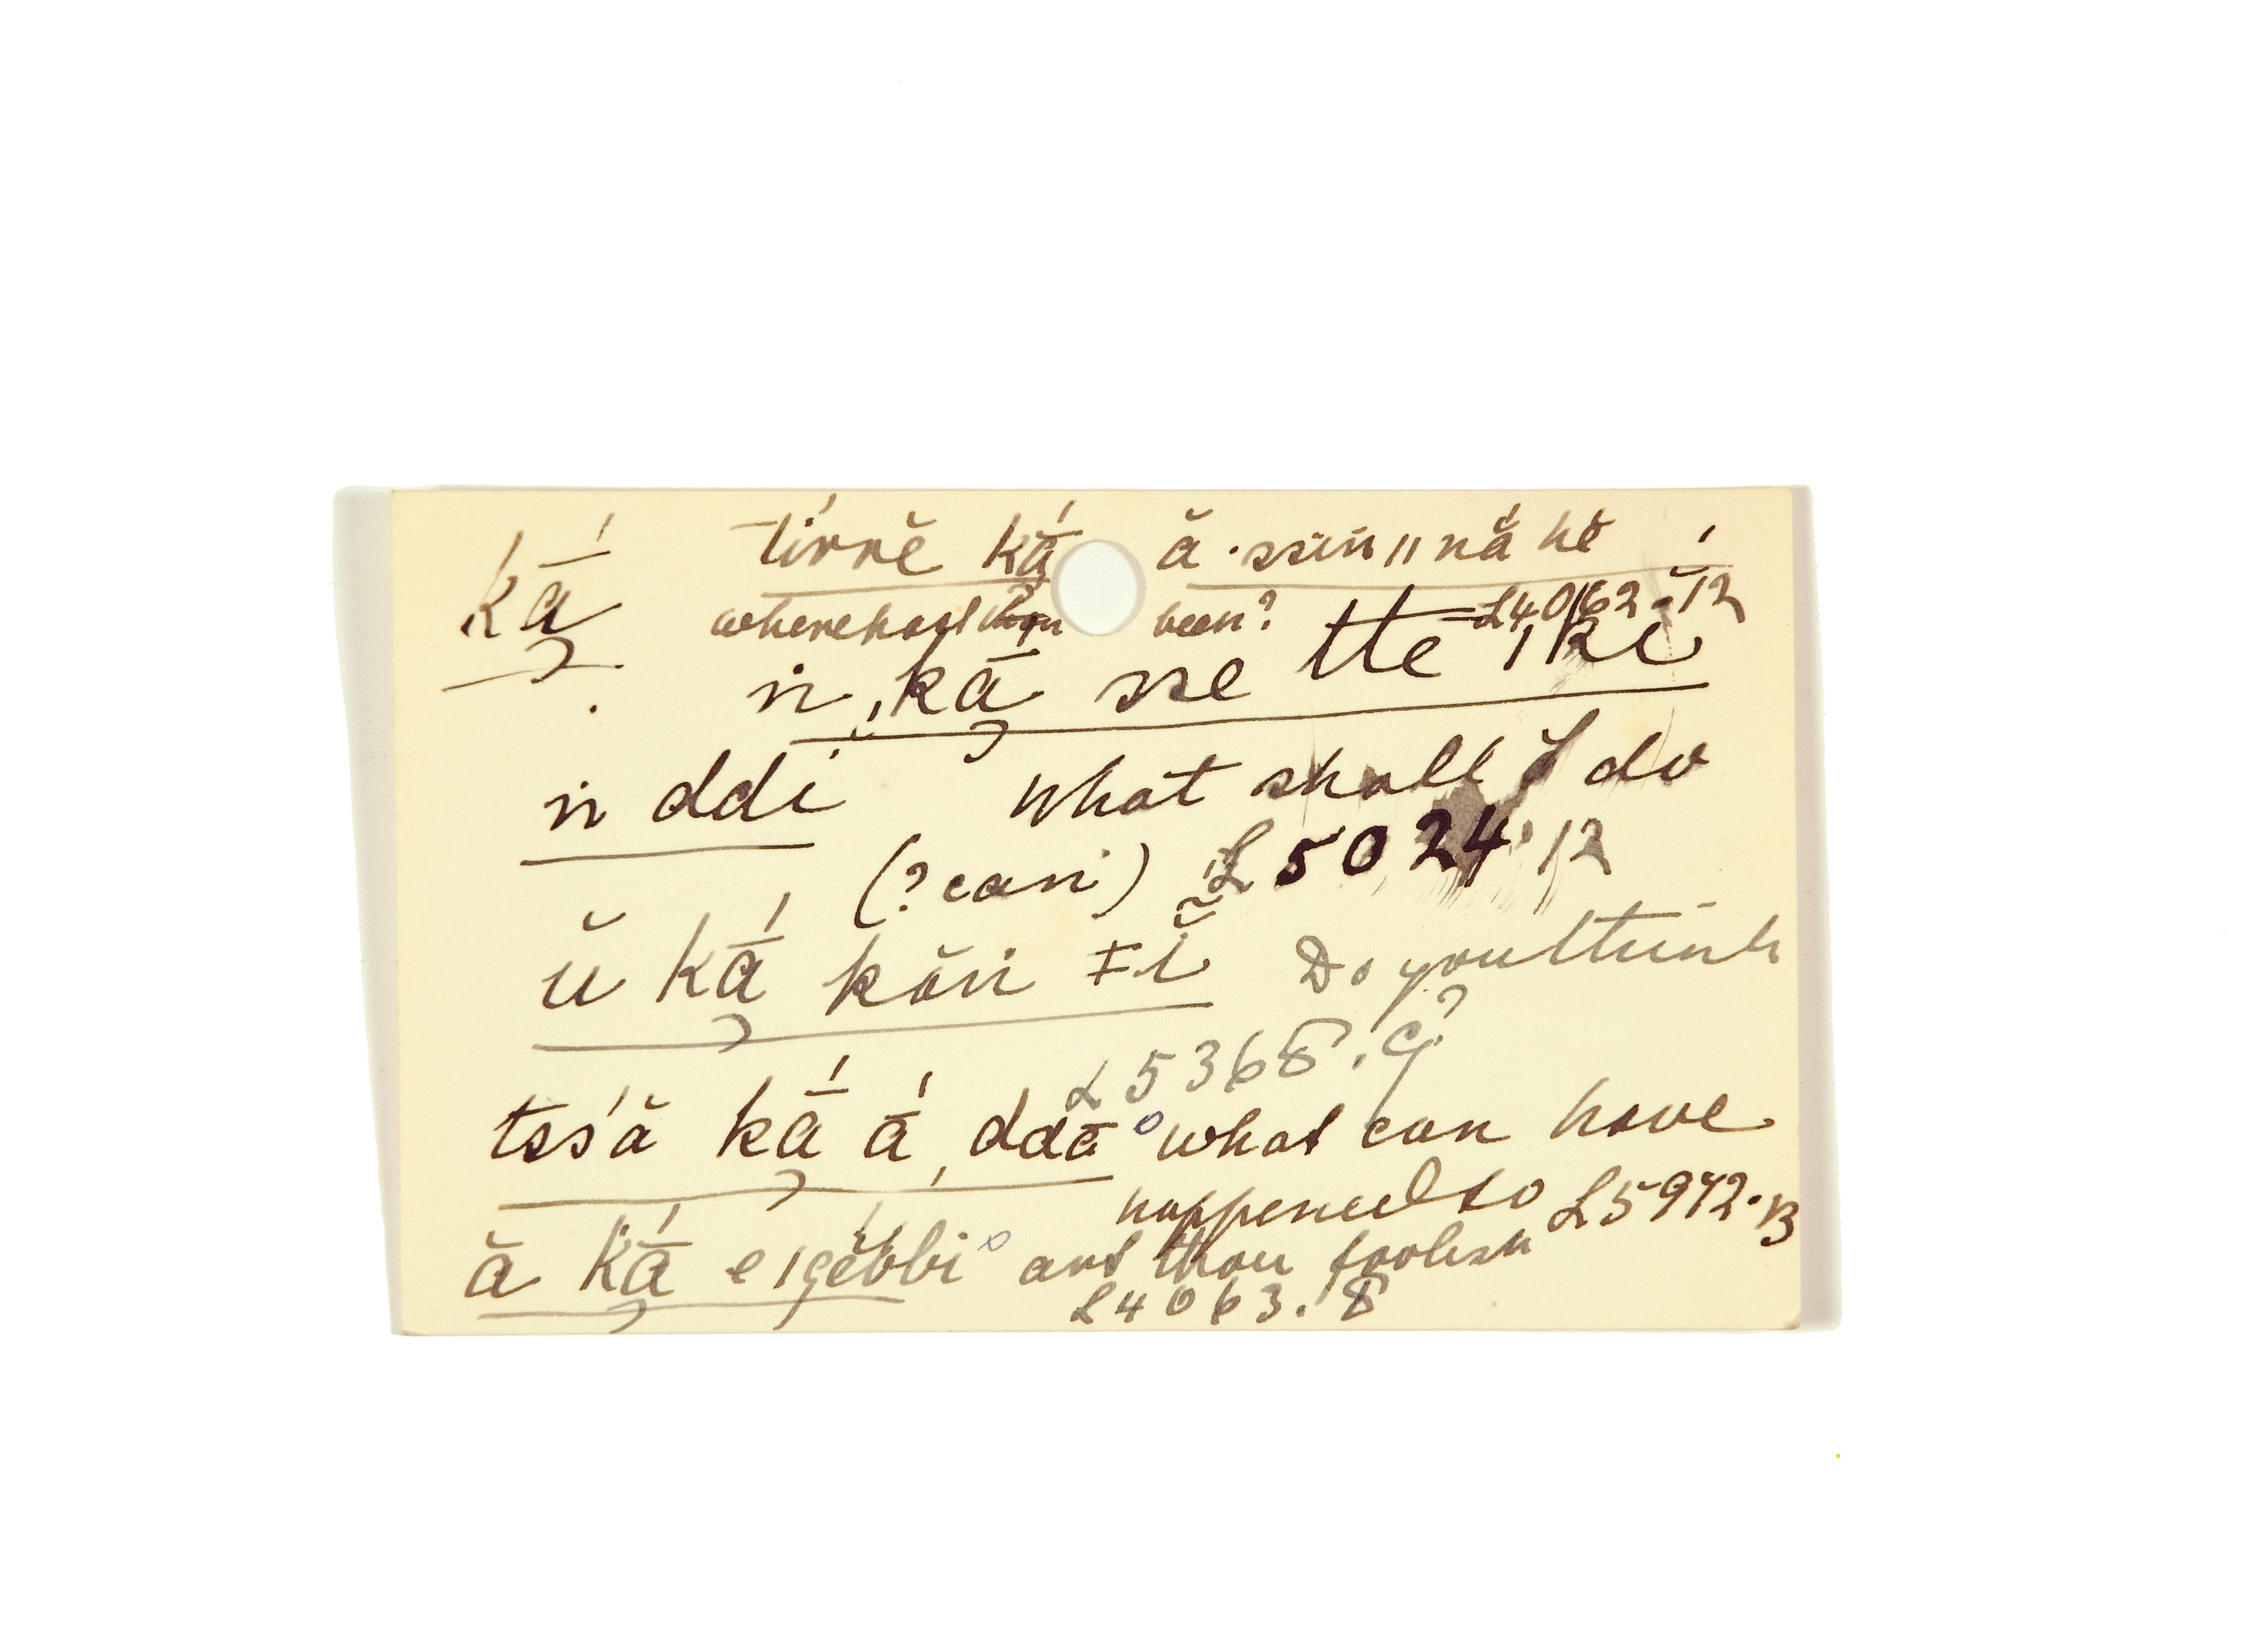 ká̄ tírrĕ ká̄ ă ·ssīn ǁnắ hĕ
where hast thou been? L4062·12
n̄ ǀká̄ sse tté̄ ǀkĭ
n̄ ddī what shall I do
(?can) L5024·12
ŭ ká̄ kăn ǂĭ Do you think
L5368.9?
tss'ă ká̄ á̄ ǀddā what can have
happened to L5972·13
ă ká̄ e ǀgĕbbi art thou foolish
L4063.8